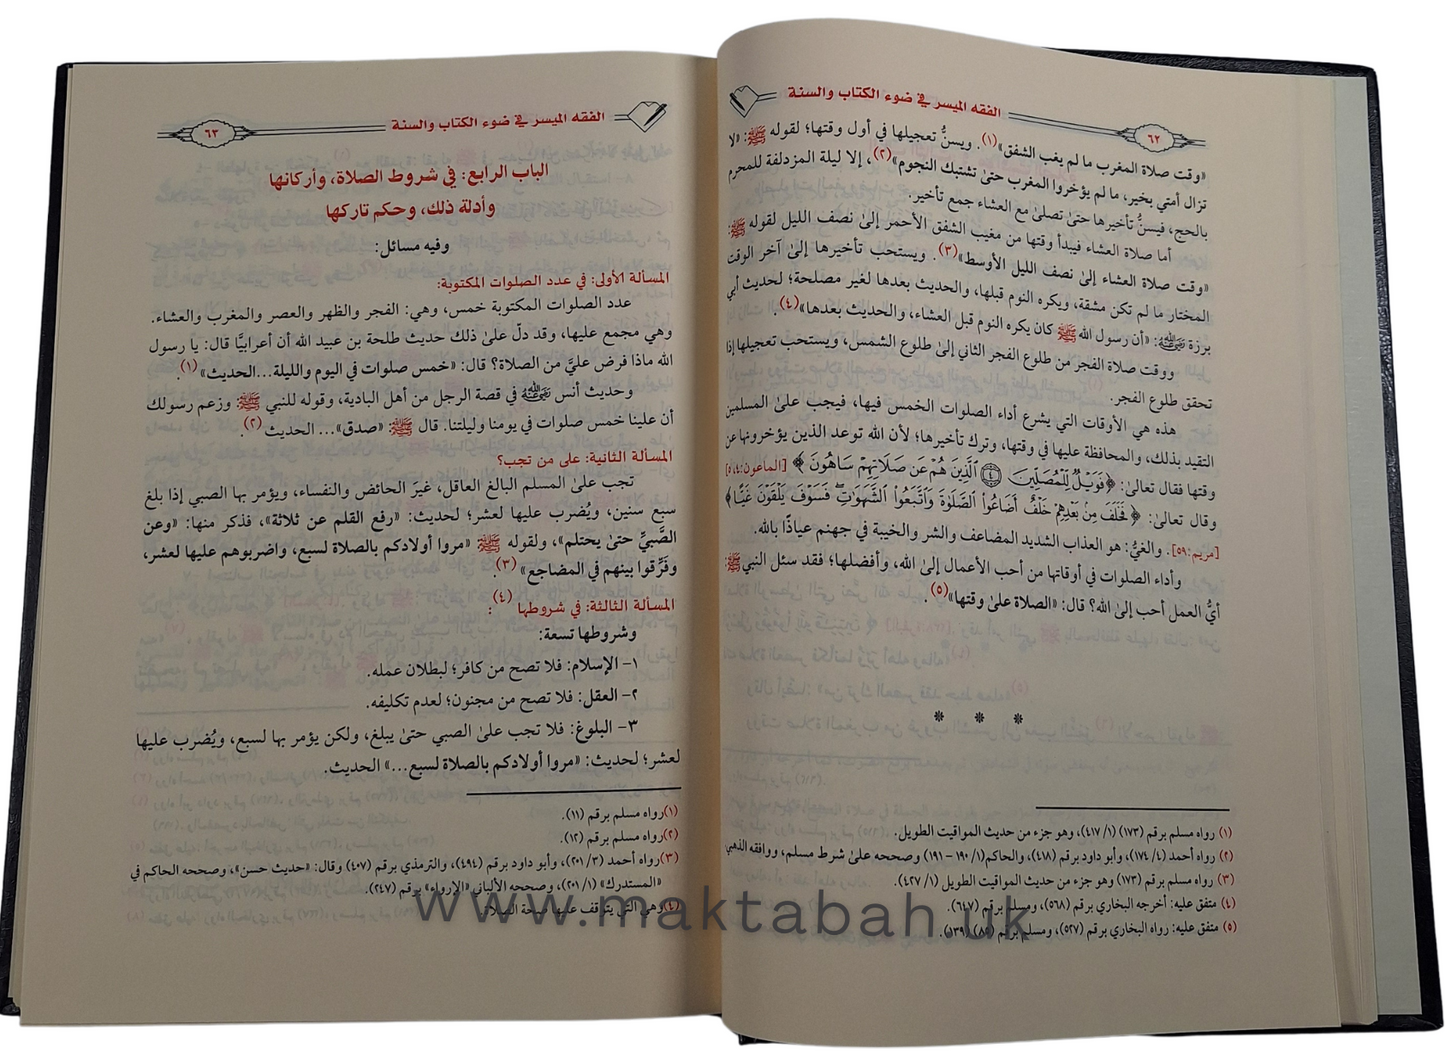 الفقه الميسر في ضوء الكتاب والسنة
٦٢
«وقت صلاة المغرب ما لم يغب الشفق»(١). ويسنُّ تعجيلها في أول وقتها؛ لقوله ﷺ: «لا
تزال أمتي بخير، ما لم يؤخروا المغرب حتىٰ تشتبك النجوم»(٢)، إلا ليلة المزدلفة للمحرم
بالحج، فيسنُّ تأخيرها حتىٰ تصلىٰ مع العشاء جمع تأخير.
أما صلاة العشاء فيبدأ وقتها من مغيب الشفق الأحمر إلىٰ نصف الليل لقوله ﷺ:
«وقت صلاة العشاء إلىٰ نصف الليل الأوسط»(٣). ويستحب تأخيرها إلىٰ آخر الوقت
المختار ما لم تكن مشقة، ويكره النوم قبلها، والحديث بعدها لغير مصلحة؛ لحديث أبي
برزة رضي الله عنه: «أن رسول الله ﷺ كان يكره النوم قبل العشاء، والحديث بعدها»(٤).
ووقت صلاة الفجر من طلوع الفجر الثاني إلىٰ طلوع الشمس، ويستحب تعجيلها إذا
تحقق طلوع الفجر.
هذه هي الأوقات التي يشرع أداء الصلوات الخمس فيها، فيجب علىٰ المسلمين
التقيد بذلك، والمحافظة عليها في وقتها، وترك تأخيرها؛ لأن الله توعد الذين يؤخرونها عن
وقتها فقال تعالىٰ: ﴿فَوَيْلٌ لِّلْمُصَلِّينَ ۝٤ ٱلَّذِينَ هُمْ عَن صَلَاتِهِمْ سَاهُونَ﴾ [الماعون:٤، ٥]
وقال تعالىٰ: ﴿فَخَلَفَ مِنۢ بَعْدِهِمْ خَلْفٌ أَضَاعُوا۟ ٱلصَّلَوٰةَ وَٱتَّبَعُوا۟ ٱلشَّهَوَٰتِ ۖ فَسَوْفَ يَلْقَوْنَ غَيًّا﴾
[مريم:٥٩]. والغيُّ: هو العذاب الشديد المضاعف والشر والخيبة في جهنم عياذًا بالله.
وأداء الصلوات في أوقاتها من أحب الأعمال إلىٰ الله، وأفضلها؛ فقد سئل النبي ﷺ:
أيُّ العمل أحب إلىٰ الله؟ قال: «الصلاة علىٰ وقتها»(٥).
* * *
(١) رواه مسلم برقم (١٧٣) (١/ ٤١٧)، وهو جزء من حديث المواقيت الطويل.
(٢) رواه أحمد (٤/ ١٧٤)، وأبو داود برقم (٤١٨)، والحاكم(١/ ١٩٠ - ١٩١) وصححه علىٰ شرط مسلم، ووافقه الذهبي
(٣) رواه مسلم برقم (١٧٣) وهو جزء من حديث المواقيت الطويل (١/ ٤٢٧).
(٤) متفق عليه: أخرجه البخاري برقم (٥٦٨)، ومسلم برقم (٦٤٧).
(٥) متفق عليه: رواه البخاري برقم (٥٢٧)، ومسلم برقم (٨٥) (١٣٩).
الفقه الميسر في ضوء الكتاب والسنة
٦٣
الباب الرابع: في شروط الصلاة، وأركانها
وأدلة ذلك، وحكم تاركها
وفيه مسائل:
المسألة الأولى: في عدد الصلوات المكتوبة:
عدد الصلوات المكتوبة خمس، وهي: الفجر والظهر والعصر والمغرب والعشاء.
وهي مجمع عليها، وقد دلّ علىٰ ذلك حديث طلحة بن عبيد الله أن أعرابيًّا قال: يا رسول
الله ماذا فرض عليَّ من الصلاة؟ قال: «خمس صلوات في اليوم والليلة...الحديث»(١).
وحديث أنس رضي الله عنه في قصة الرجل من أهل البادية، وقوله للنبي ﷺ: وزعم رسولك
أن علينا خمس صلوات في يومنا وليلتنا. قال ﷺ: «صدق»... الحديث(٢).
المسألة الثانية: على من تجب؟
تجب علىٰ المسلم البالغ العاقل، غيرَ الحائض والنفساء، ويؤمر بها الصبي إذا بلغ
سبع سنين، ويُضرب عليها لعشر؛ لحديث: «رفع القلم عن ثلاثة»، فذكر منها: «وعن
الصَّبيِّ حتىٰ يحتلم»، ولقوله ﷺ «مروا أولادكم بالصلاة لسبع، واضربوهم عليها لعشر،
وفَرِّقوا بينهم في المضاجع»(٣).
المسألة الثالثة: في شروطها(٤):
وشروطها تسعة:
١- الإسلام: فلا تصح من كافر؛ لبطلان عمله.
٢- العقل: فلا تصح من مجنون؛ لعدم تكليفه.
٣- البلوغ: فلا تجب علىٰ الصبي حتىٰ يبلغ، ولكن يؤمر بها لسبع، ويُضرب عليها
لعشر؛ لحديث: «مروا أولادكم بالصلاة لسبع...» الحديث.
(١)رواه مسلم برقم (١١).
(٢)رواه مسلم برقم (١٢).
(٣)رواه أحمد (٣/ ٢٠١)، وأبو داود برقم (٤٩٤)، والترمذي برقم (٤٠٧) وقال: «حديث حسن»، وصححه الحاكم في
«المستدرك» (١/ ٢٠١)، وصححه الألباني «الإرواء» برقم (٢٤٧).
(٤)وهي التي يتوقف عليها صحة الصلاة.
www.maktabah.uk